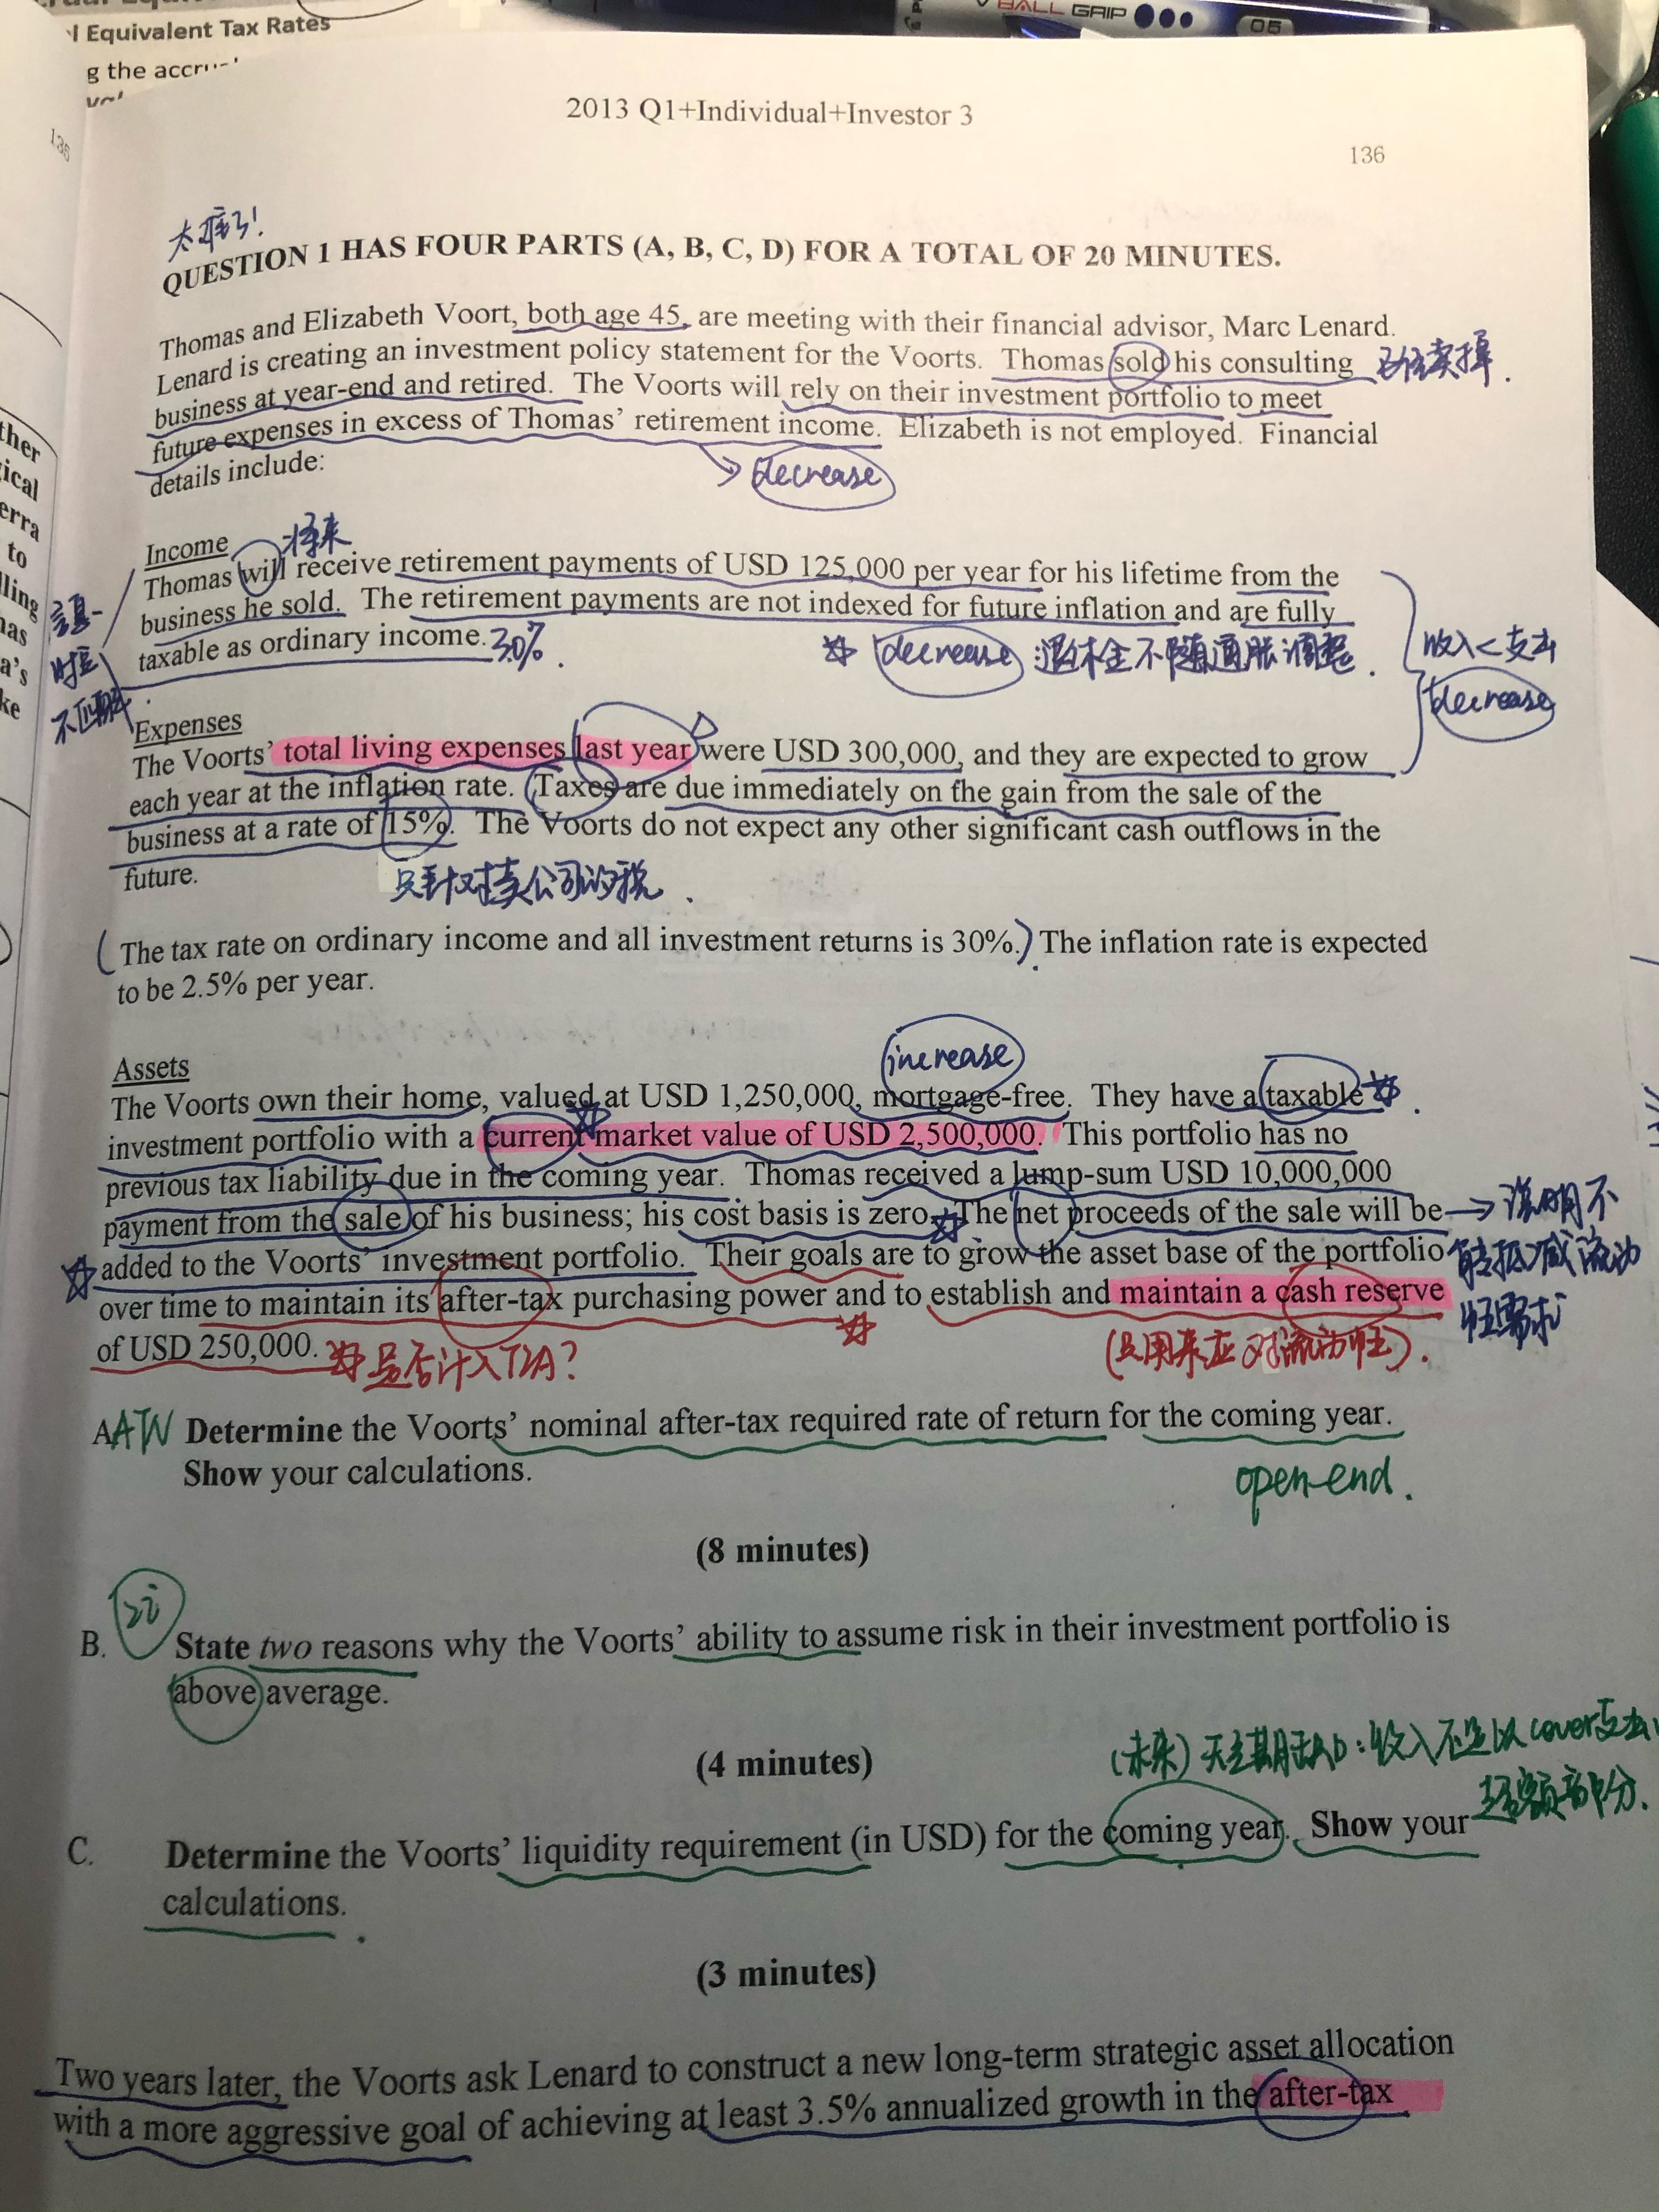 BALL GRIP
05
l Equivalent Tax Rates
g the accru
2013 Q1+Individual+Investor 3
136
136
太难了!
QUESTION 1 HAS FOUR PARTS (A, B, C, D) FOR A TOTAL OF 20 MINUTES.
Thomas and Elizabeth Voort, both age 45, are meeting with their financial advisor, Marc Lenard.
Lenard is creating an investment policy statement for the Voorts. Thomas sold his consulting
已经卖掉.
business at year-end and retired. The Voorts will rely on their investment portfolio to meet
future expenses in excess of Thomas' retirement income. Elizabeth is not employed. Financial
details include:
decrease
ther
ical
erra
to
lling
has
a's
ke
将来
Income
Thomas will receive retirement payments of USD 125,000 per year for his lifetime from the
business he sold. The retirement payments are not indexed for future inflation and are fully
taxable as ordinary income. 30%.
decrease 退休金不随通胀调整.
收入<支出
decrease
不匹配.
Expenses
The Voorts' total living expenses last year were USD 300,000, and they are expected to grow
each year at the inflation rate. Taxes are due immediately on the gain from the sale of the
business at a rate of 15%. The Voorts do not expect any other significant cash outflows in the
future.
只针对卖公司的税.
(The tax rate on ordinary income and all investment returns is 30%.) The inflation rate is expected
to be 2.5% per year.
increase
Assets
The Voorts own their home, valued at USD 1,250,000, mortgage-free. They have a taxable
investment portfolio with a current market value of USD 2,500,000. This portfolio has no
previous tax liability due in the coming year. Thomas received a lump-sum USD 10,000,000
payment from the sale of his business; his cost basis is zero. The net proceeds of the sale will be
added to the Voorts' investment portfolio. Their goals are to grow the asset base of the portfolio
over time to maintain its after-tax purchasing power and to establish and maintain a cash reserve
of USD 250,000.
说明不
能抵减流动
性需求
是否计入TIA?
(只用来应对流动性).
A ATN Determine the Voorts' nominal after-tax required rate of return for the coming year.
Show your calculations.
open-end.
(8 minutes)
B. State two reasons why the Voorts' ability to assume risk in their investment portfolio is
above average.
(4 minutes)
(未来)
收入不足以cover支出
超额部分.
C. Determine the Voorts' liquidity requirement (in USD) for the coming year. Show your
calculations.
(3 minutes)
Two years later, the Voorts ask Lenard to construct a new long-term strategic asset allocation
with a more aggressive goal of achieving at least 3.5% annualized growth in the after-tax